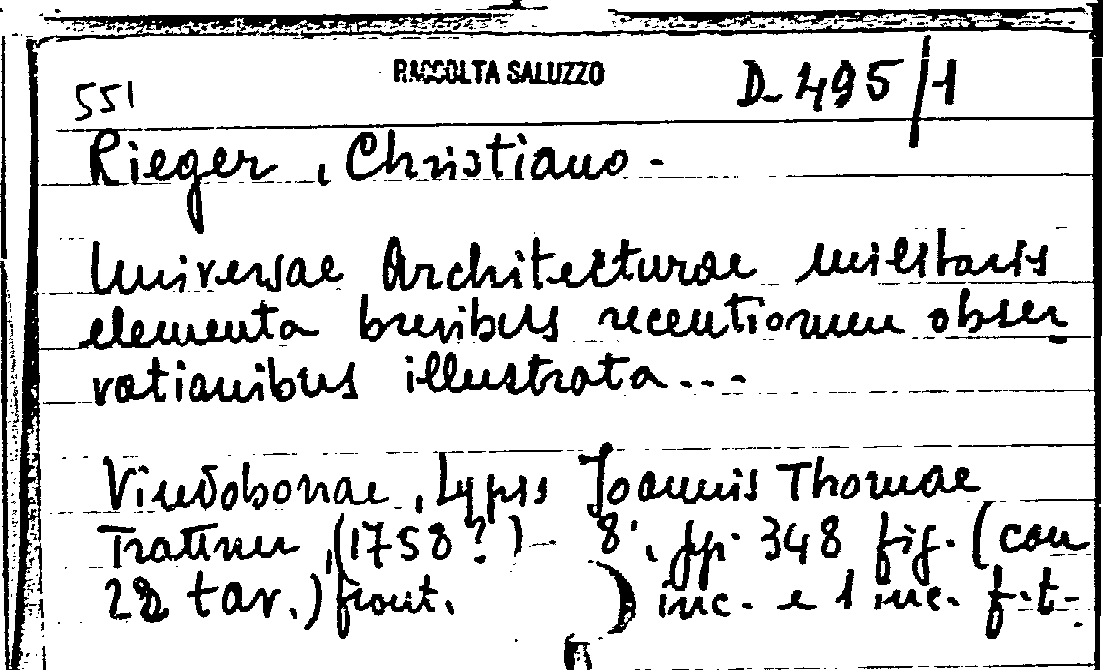 RACCOLTA SALUZZO
551 D-495/1
Rieger, Christiano-
Universae Architecturae militaris
elementa brevibus recentiorum obser
vationibus illustrata...
Vindobonae, Typis Joannis Thomae
Trattner, (1758?) - 8°, pp. 348 fig. (con
28 tav.) front. ) inc. e 1 inc. f.t.-